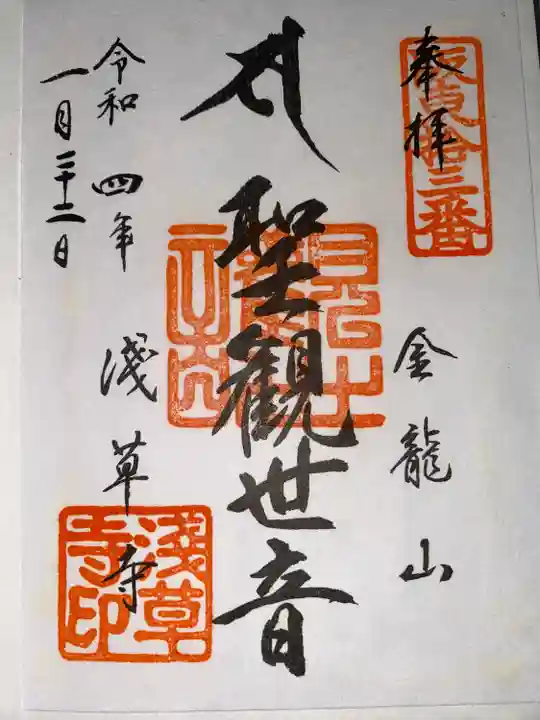 奉拝
坂東拾三番
金龍山
聖観世音
浅草寺
淺草寺印
令和四年
一月二十二日